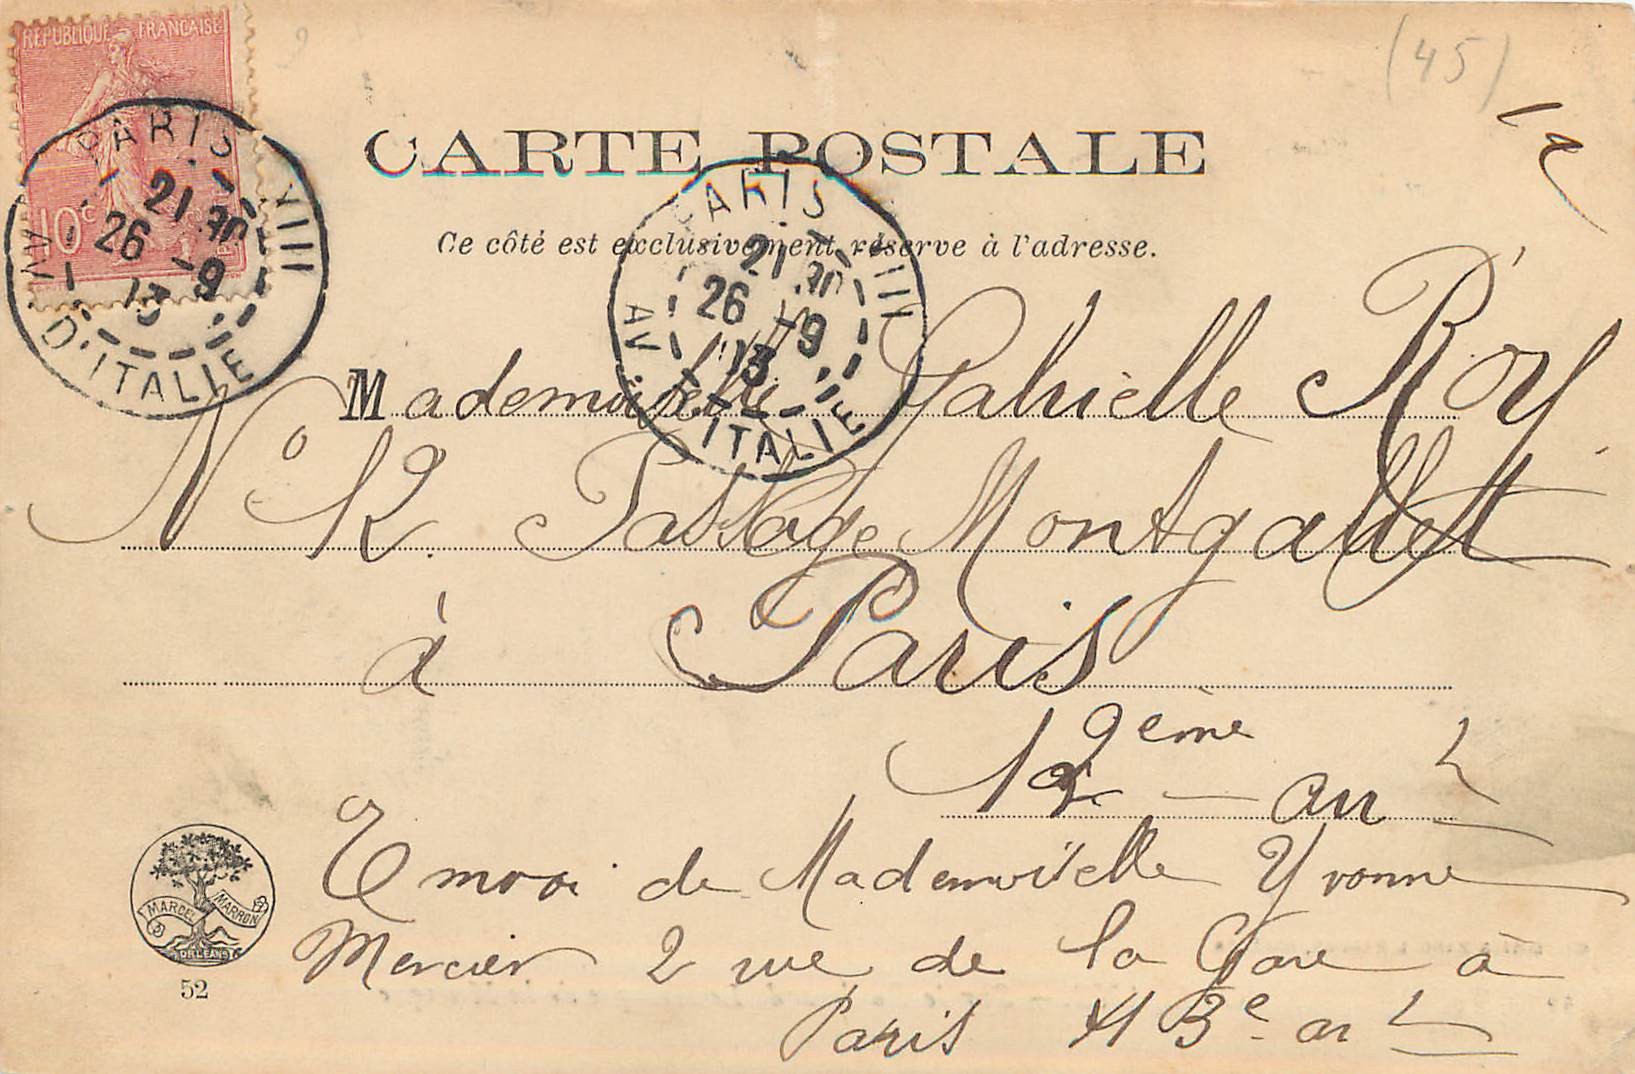 RÉPUBLIQUE FRANÇAISE
10c
PARIS XIII
21 30
26 -9
03
AV. D'ITALIE
(45)
CARTE POSTALE
PARIS XIII
21 30
26 -9
03
AV. D'ITALIE
Ce côté est exclusivement réservé à l'adresse.
Mademoiselle Gabrielle Roy
N° 12. Passage Montgallet
à Paris
12ème arrt
Envoi de Mademoiselle Yvonne
Mercier 2 rue de la Gare à
Paris 13e arrt
MARCEL MARRON
ORLEANS
52